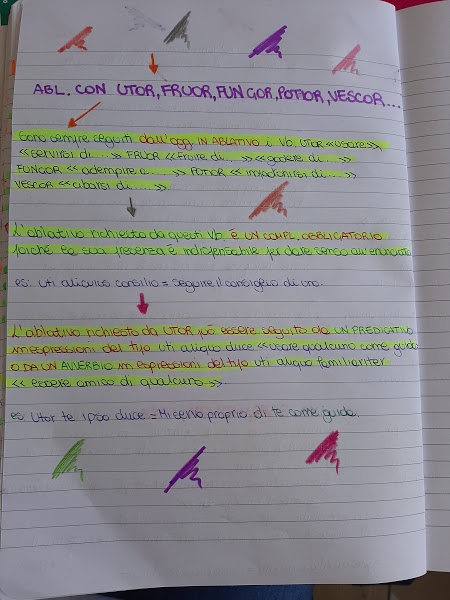 ABL. CON UTOR, FRUOR, FUNGOR, POTIOR, VESCOR...
Sono sempre seguiti dall'ogg IN ABLATIVO i Vb. UTOR «usare»
«servirsi di... » FRUOR «fruire di... » «godere di... »
FUNGOR «adempiere a... » POTIOR «impadronirsi di... »
VESCOR «cibarsi di... »
L'ablativo richiesto da questi Vb. È UN COMPL. OBBLIGATORIO
poiché la sua presenza è indispensabile per dare senso all'enunciato
es: uti alicuius consilio = seguire il consiglio di uno.
L'ablativo richiesto da UTOR può essere seguito da UN PREDICATIVO
in espressioni del tipo uti aliquo duce «usare qualcuno come guida»
O DA UN AVVERBIO in espressioni del tipo uti aliquo familiariter
«essere amico di qualcuno».
es: Utor te ipso duce = Mi servo proprio di te come guida.